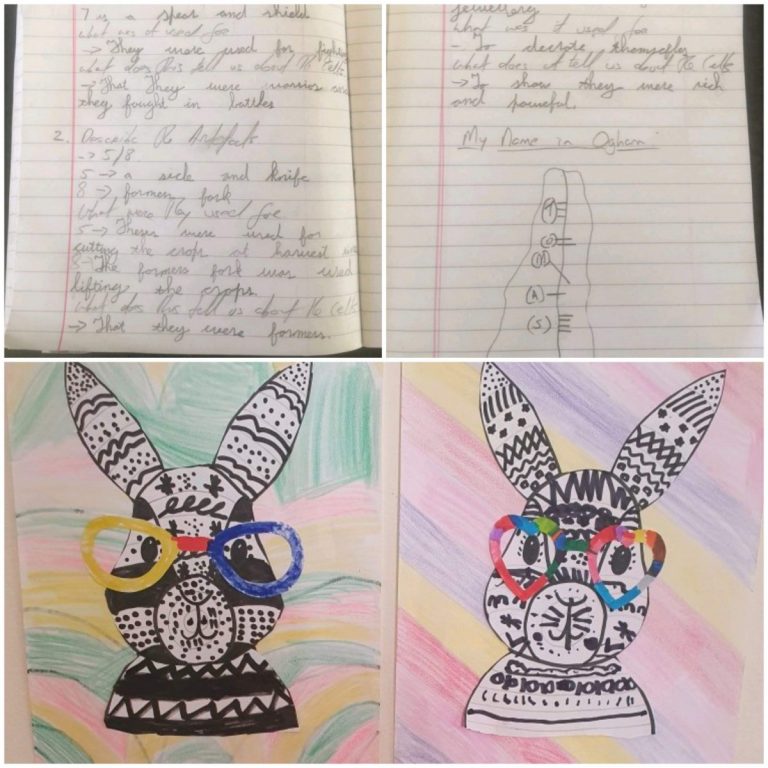 7 is a spear and shield
What was it used for
→ They were used for
What does this tell us about the Celts
→ That They were warriors
they fought in battles
2. Describe the Artefacts
→ 5/8
5 → a sick and knife
8 → formers fork
What were they used for
5 → Theses were used for
cutting the crops at harvest
8 → The formers fork was used
lifting the crops.
What does this tell us about the Celts
→ That they were formers.
jewellery
What was it used for
- To decrote themselfs
What does it tell us about the Celts
→ To show they were rich
and powerful.
My Name in Ogham
T
O
M
A
S